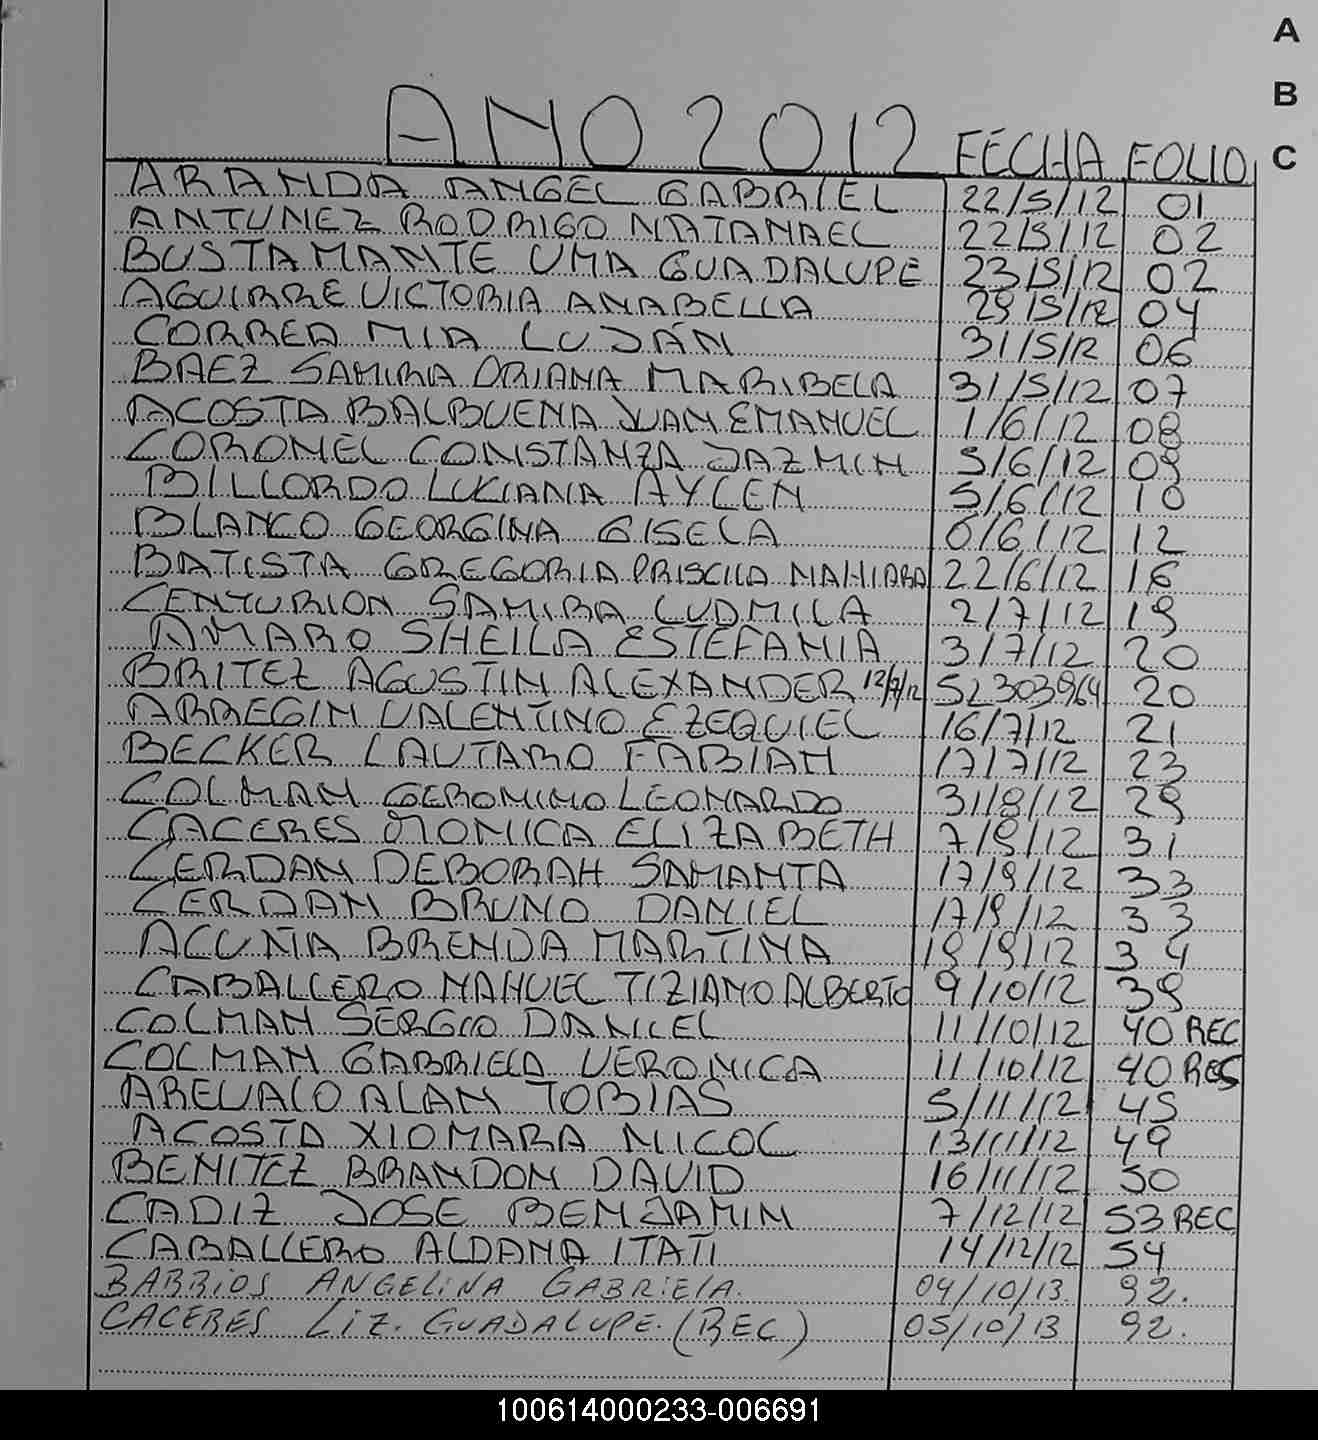 A
B
C
AÑO 2012 FECHA FOLIO
ARANDA ANGEL GABRIEL 22/5/12 01
ANTUNEZ RODRIGO NATANAEL 22/5/12 02
BUSTAMANTE UMA GUADALUPE 23/5/12 02
AGUIRRE VICTORIA ANABELLA 29/5/12 04
CORREA MIA LUJÁN 31/5/12 06
BAEZ SAMIRA ORIANA MARIBELA 31/5/12 07
ACOSTA BALBUENA JUAN EMANUEL 1/6/12 08
CORONEL CONSTANZA JAZMIN 5/6/12 09
BILLORDO LUCIANA AYLEN 5/6/12 10
BLANCO GEORGINA GISELA 6/6/12 12
BATISTA GREGORIA PRISCILA NAHIARA 22/6/12 16
CENTURION SAMIRA LUDMILA 2/7/12 19
AMARO SHEILA ESTEFANIA 3/7/12 20
BRITEZ AGUSTIN ALEXANDER 12/7/12 52303964 20
ARREGIN VALENTINO EZEQUIEL 16/7/12 21
BECKER LAUTARO FABIAN 17/7/12 23
COLMAN GERONIMO LEONARDO 31/8/12 29
CACERES MONICA ELIZABETH 7/9/12 31
CERDAN DEBORAH SAMANTA 17/9/12 33
CERDAN BRUNO DANIEL 17/9/12 33
ACUÑA BRENDA MARTINA 19/9/12 34
CABALLERO NAHUEL TIZIANO ALBERTO 9/10/12 39
COLMAN SERGIO DANIEL 11/10/12 40 REC
COLMAN GABRIELA VERONICA 11/10/12 40 REC
AREVALO ALAN TOBIAS 5/11/12 45
ACOSTA XIOMARA NICOL 13/11/12 49
BENITEZ BRANDON DAVID 16/11/12 50
CADIZ JOSE BENJAMIN 7/12/12 53 REC
CABALLERO ALDANA ITATI 14/12/12 54
BARRIOS ANGELINA GABRIELA. 04/10/13. 92.
CACERES LIZ. GUADALUPE. (REC) 05/10/13 92.
100614000233-006691